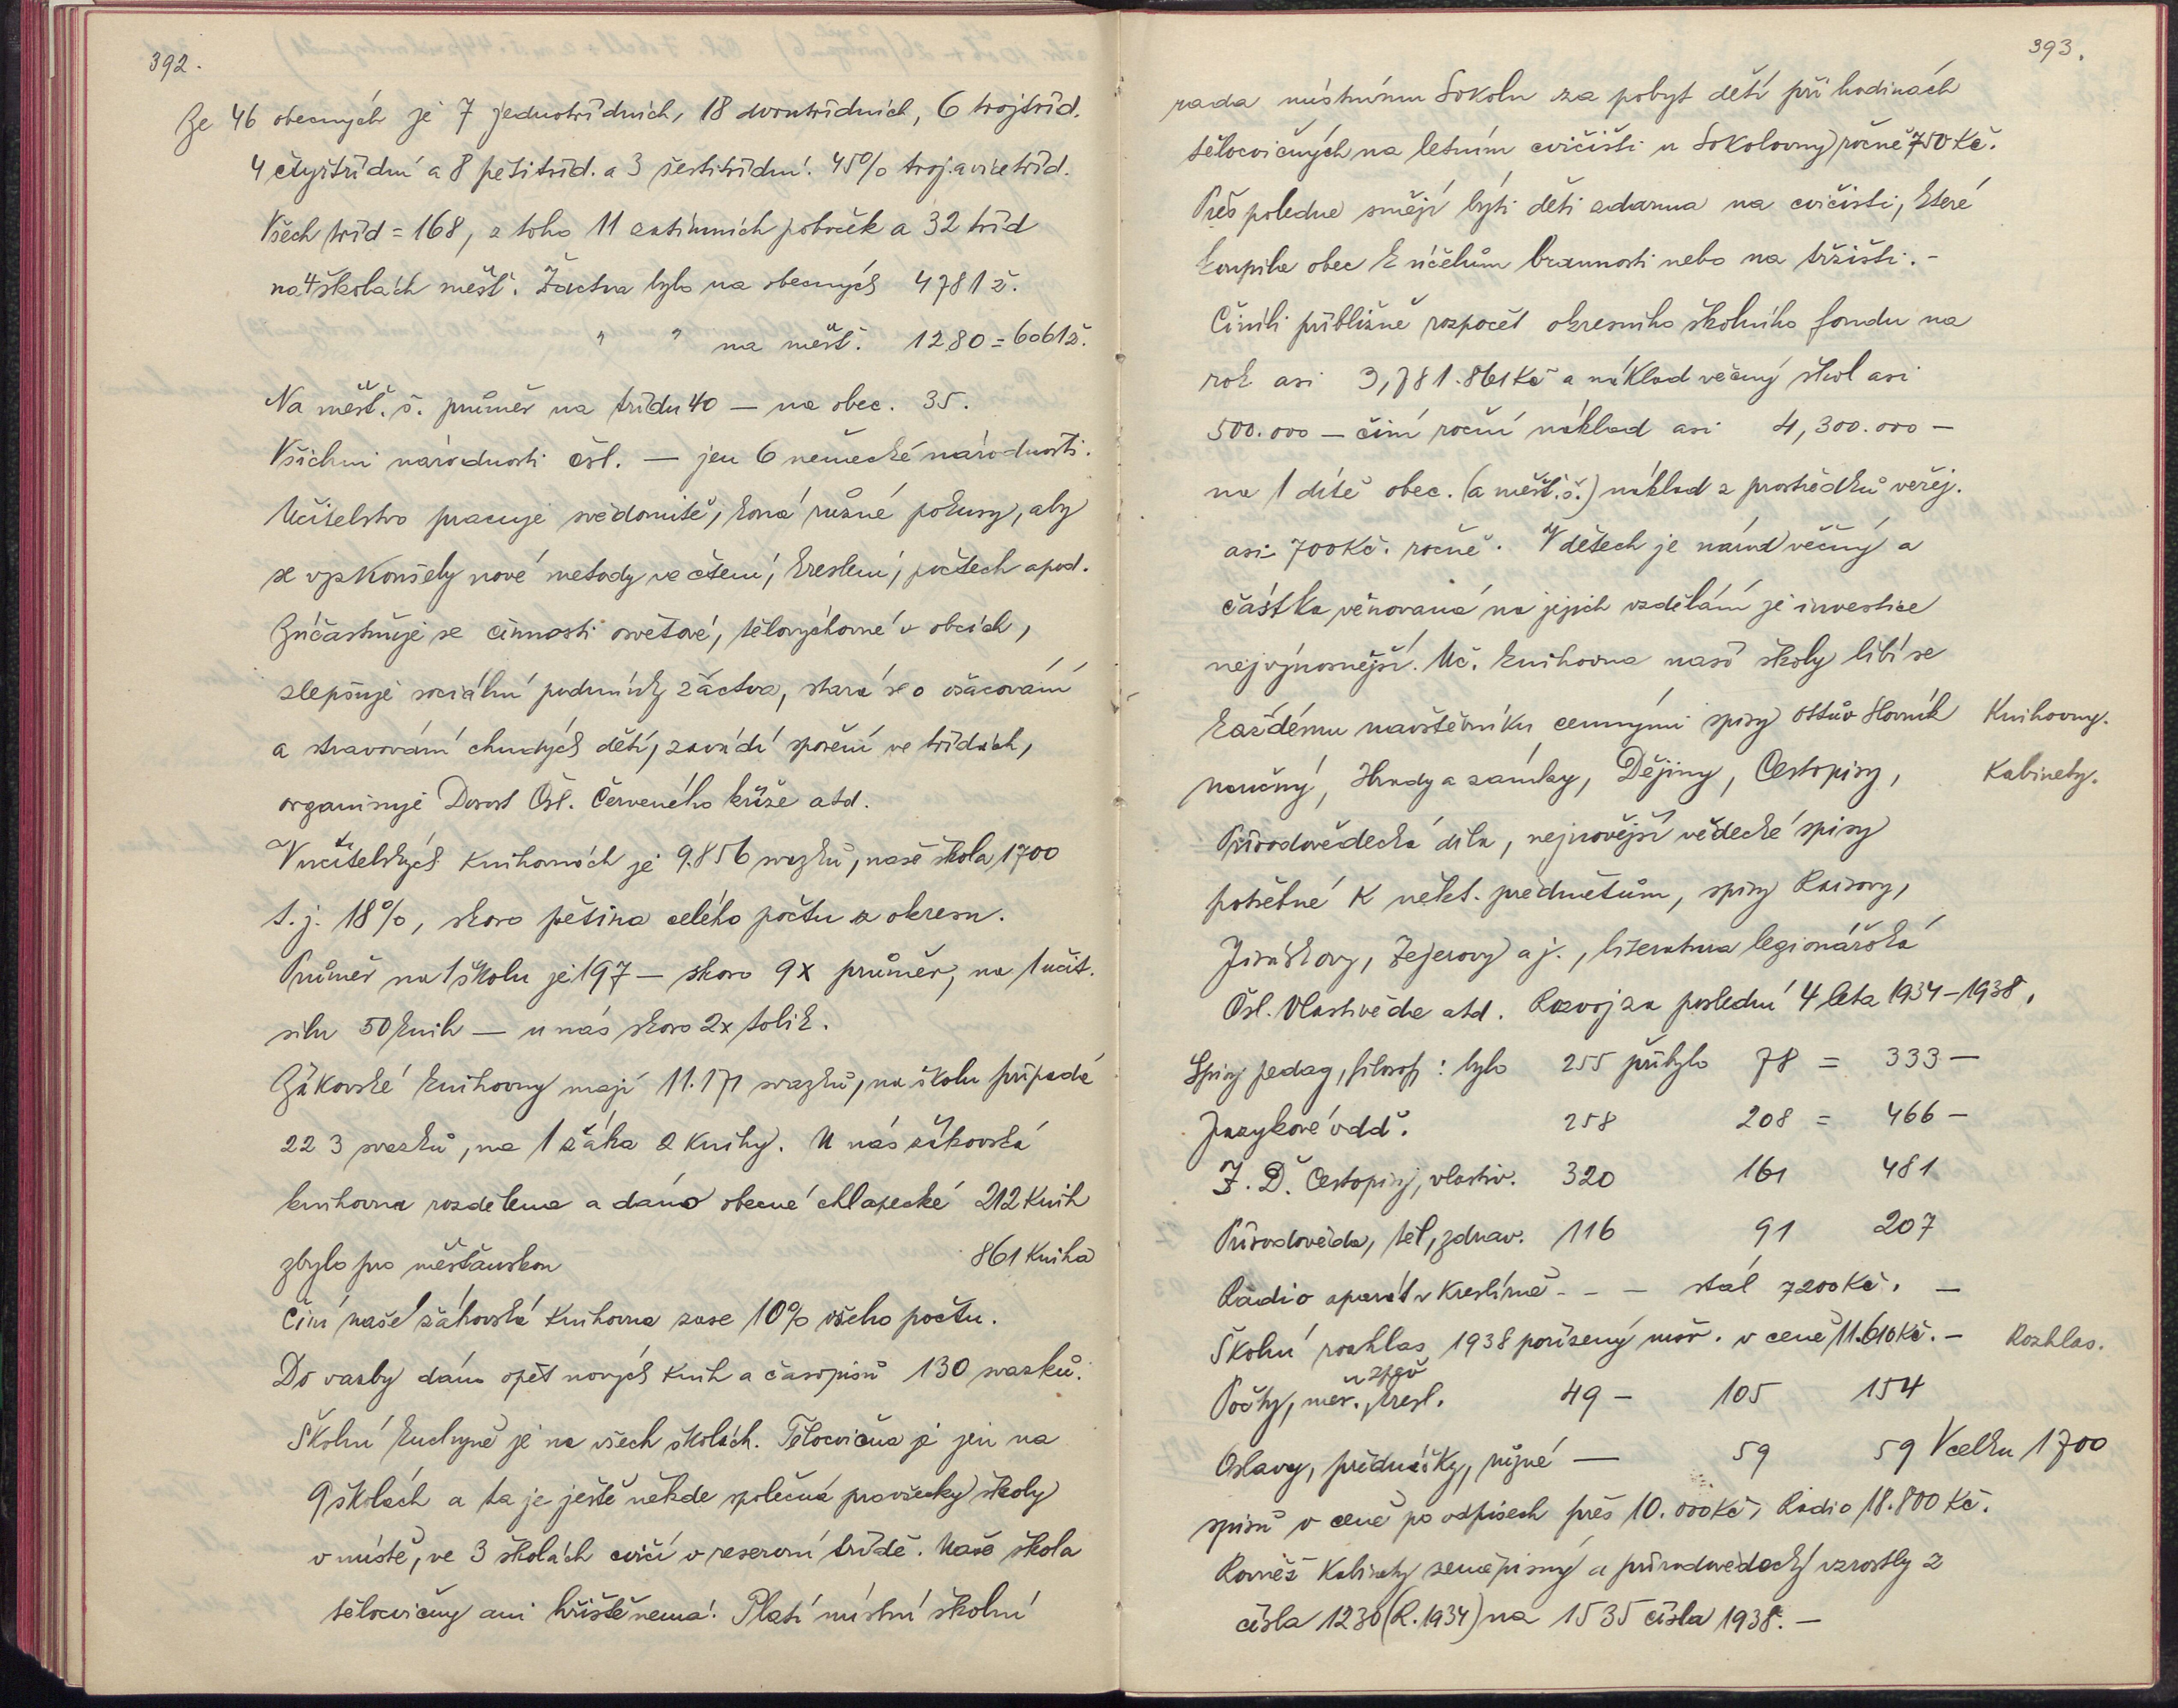 392.
Ze 46 obecných je 7 jednotřídních, 18 dvoutřídních, 6 trojtříd.
4 čtyřtřídní a 8 pětitříd. a 3 šestitřídní. 45% troj.avícetříd.
Všech tříd = 168, z toho 11 zatímních poboček a 32 tříd
na 4 školách měšť. Žactva bylo na obecných 4781 ž.
" " na měšť. 1280 = 6061 ž.
Na měšť. š. průměr na třídu 40 — na obec. 35.
Všichni národnosti čsl. — jen 6 německé národnosti.
Učitelstvo pracuje svědomitě, koná různé pokusy, aby
se vyzkoušely nové metody ve čtení, kreslení, počtech apod.
Zúčastňuje se činnosti osvětové, tělovýchovné v obcích,
zlepšuje sociální podmínky žáctva, stará se o ošacování
a stravování chudých dětí, zavádí spoření ve třídách,
organisuje Dorost Čsl. Červeného kříže atd.
V učitelských knihovnách je 9.856 svazků, naše škola 1700
t.j. 18%, skoro pětina celého počtu z okresu.
Průměr na 1 školu je 197 — skoro 9x průměr, na 1 učit.
silu 50 knih — u nás skoro 2x tolik.
Žákovské knihovny mají 11.171 svazků, na školu připadá
223 svazků, na 1 žáka 2 knihy. U nás žákovská
knihovna rozdělena a dáno obecné chlapecké 212 knih
zbylo pro měšťanskou 861 kniha
Činí naše žákovská knihovna zase 10% všeho počtu.
Do vazby dáno opět nových knih a časopisů 130 svazků.
Školní kuchyně je na všech školách. Tělocvična je jen na
9 školách a ta je ještě někde společná pro všecky školy
v místě, ve 3 školách cvičí v reservní třídě. Naše škola
tělocvičny ani hřiště nemá! Platí místní školní
393.
rada místnímu Sokolu za pobyt dětí při hodinách
tělocvičných na letním cvičišti u Sokolovny ročně 750 Kč.
Přes poledne smějí býti děti zdarma na cvičišti, které
koupila obec k účelům brannosti nebo na tržišti. -
Činíli přibližně rozpočet okresního školního fondu na
rok asi 3,781.861 Kč a náklad věcný škol asi
500.000 — činí roční náklad asi 4,300.000 —
na 1 dítě obec. (a měšť. š.) náklad z prostředků veřej.
asi 700 Kč. ročně. V dětech je národ věčný a
částka věnovaná na jejich vzdělání je investice
nejvýnosnější. Uč. knihovna naší školy líbí se
každému navštěvníku cennými spisy Ottův Slovník Knihovny.
naučný, Hrady a zámky, Dějiny, Cestopisy, Kabinety.
Přírodovědecká díla, nejnovější vědecké spisy
potřebné k učeb. předmětům, spisy Raisovy,
Jiráskovy, Zejerovy aj., literatura legionářská
Čsl. Vlastivěda atd. Rozvoj za poslední 4 leta 1934-1938.
Spisy pedag, filosof: bylo 255 přibylo 78 = 333 —
Jazykové odd. 258 208 = 466 —
Z. D. Cestopisy, vlastiv. 320 161 481
Přírodověda, těl, zdrav. 116 91 207
Rádio aparát v kreslírně - - — stál 7200 Kč. —
Školní rozhlas 1938 pořízený moř. v ceně 11.610 Kč. — Rozhlas.
Počty, měř., kresl. a zpěv 49 — 105 154
Oslavy, přednášky, různé — 59 59 Vcelku 1700
spisů v ceně po odpisech přes 10.000 Kč, Rádio 18.800 Kč.
Rovněž kabinety zeměpisný a přírodovědecký vzrostly z
čísla 1230 (R. 1934) na 1535 čísla 1938. —